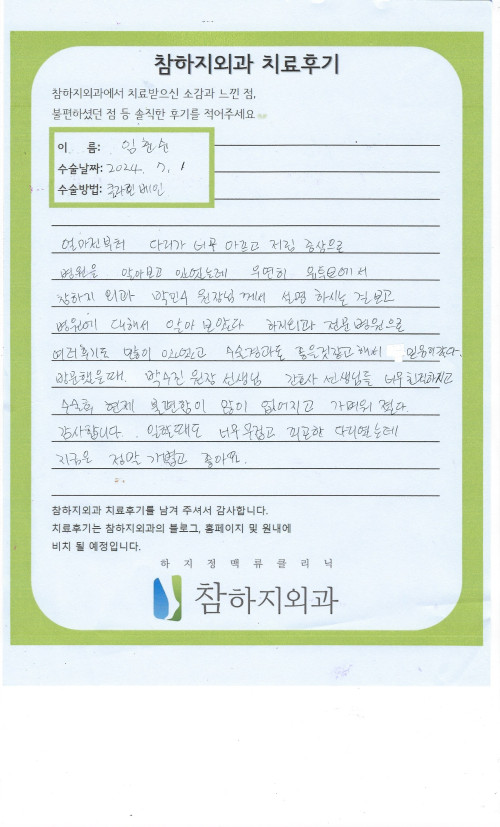 참하지외과 치료후기
참하지외과에서 치료받으신 소감과 느낀 점,
불편하셨던 점 등 솔직한 후기를 적어주세요
이 름: 임천순
수술날짜: 2024. 7. 1
수술방법: 클라리베인
얼마전부터 다리가 너무 아프고 저림 증상으로
병원을 알아보고 있었는데 우연히 유튜브에서
참하지 외과 박민수 원장님께서 설명 하시는 걸 보고
병원에 대해서 알아 보았다 하지외과 전문병원으로
여러후기도 많이 있었고 수술결과도 좋은것같고 해서 믿음이 갔다.
방문했을때. 박수진 원장 선생님 간호사 선생님들 너무 친절하시고
수술후 현제 불편함이 많이 없어지고 가벼워 졌다.
감사합니다. 일할때도 너무 무겁고 피곤한 다리였는데
지금은 정말 가볍고 좋아요.
참하지외과 치료후기를 남겨 주셔서 감사합니다.
치료후기는 참하지외과의 블로그, 홈페이지 및 원내에
비치 될 예정입니다.
하지정맥류클리닉
참하지외과